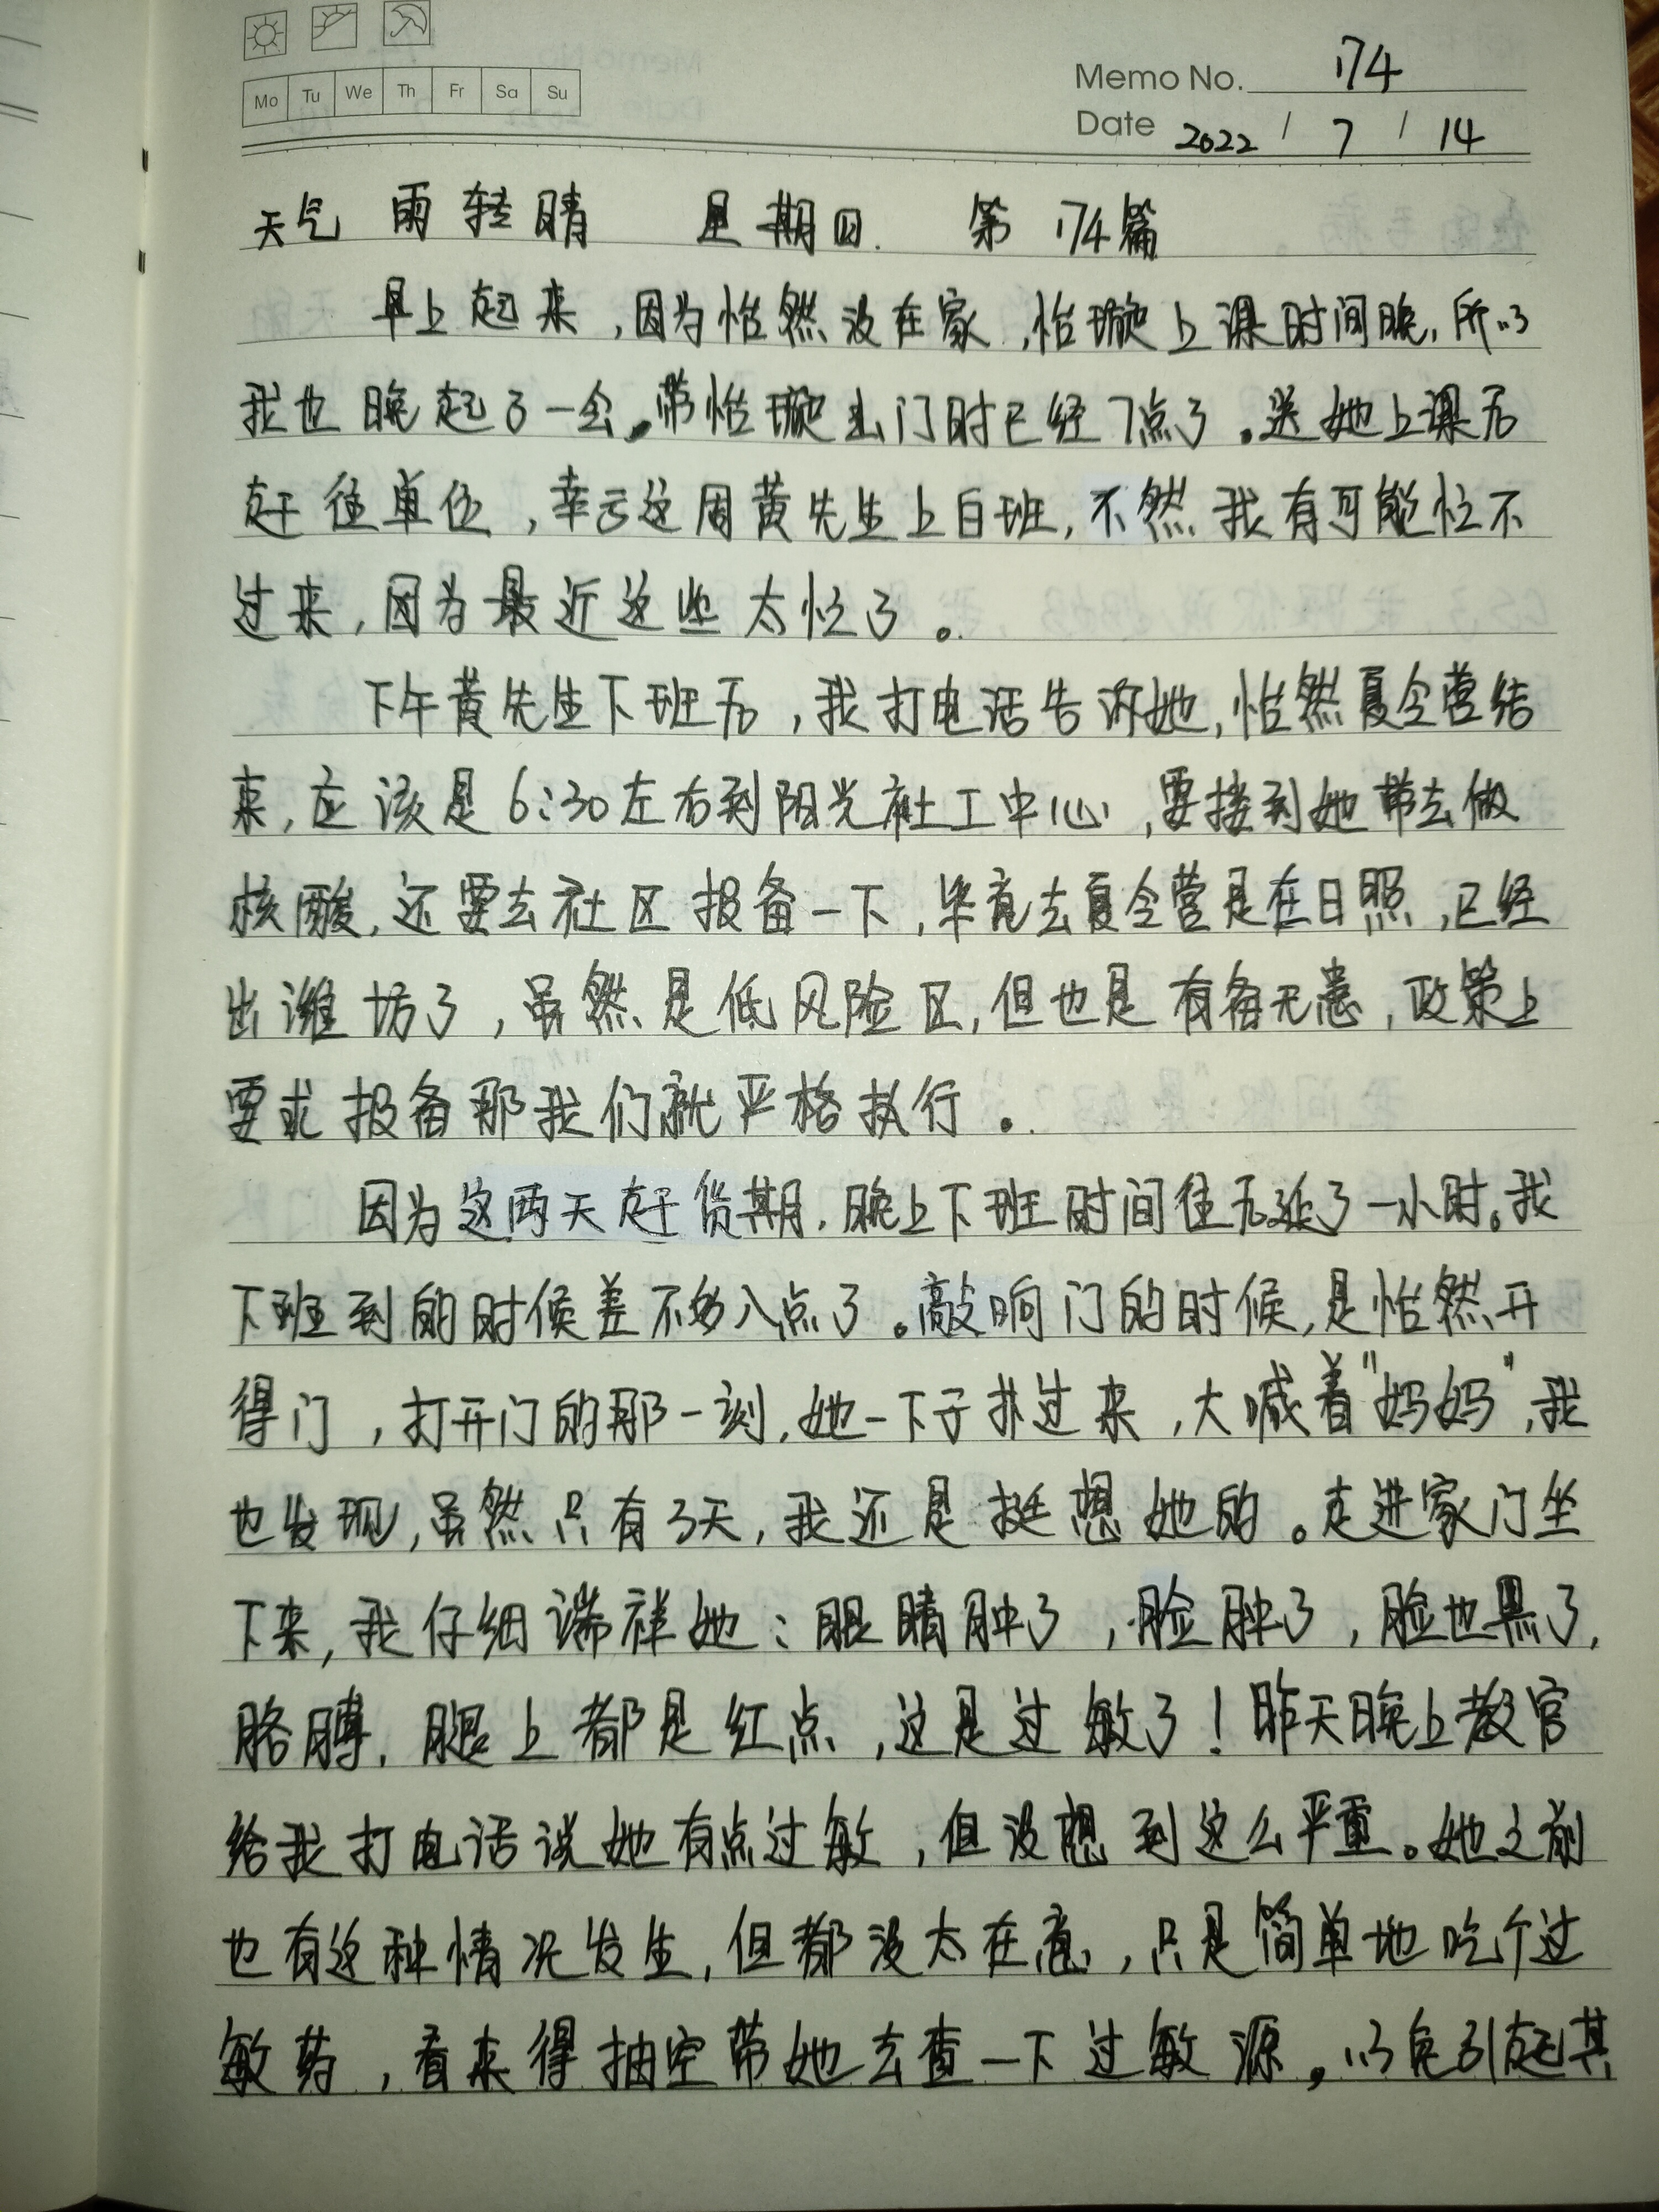 Memo No. 174
Mo Tu We Th Fr Sa Su
Date 2022 / 7 / 14
天气 雨转晴 星期四. 第174篇
早上起来,因为怡然没在家,怡璇上课时间晚,所以
我也晚起了一会。带怡璇出门时已经7点了。送她上课后
赶往单位,幸亏这周黄先生上白班,不然我有可能忙不
过来,因为最近这些太忙了。
下午黄先生下班后,我打电话告诉她,怡然夏令营结
束,应该是6:30左右到阳光社工中心,要接到她带去做
核酸,还要去社区报备一下,毕竟去夏令营是在日照,已经
出潍坊了,虽然是低风险区,但也是有备无患,政策上
要求报备那我们就严格执行。
因为这两天赶货期,晚上下班时间往后延了一小时。我
下班到的时候差不多八点了。敲响门的时候,是怡然开
得门,打开门的那一刻,她一下子扑过来,大喊着"妈妈",我
也发现,虽然只有3天,我还是挺想她的。走进家门坐
下来,我仔细端祥她:眼睛肿了,脸肿了,脸也黑了,
胳膊,腿上都是红点,这是过敏了!昨天晚上教官
给我打电话说她有点过敏,但没想到这么严重。她之前
也有这种情况发生,但都没太在意,只是简单地吃个过
敏药,看来得抽空带她去查一下过敏源,以免引起其